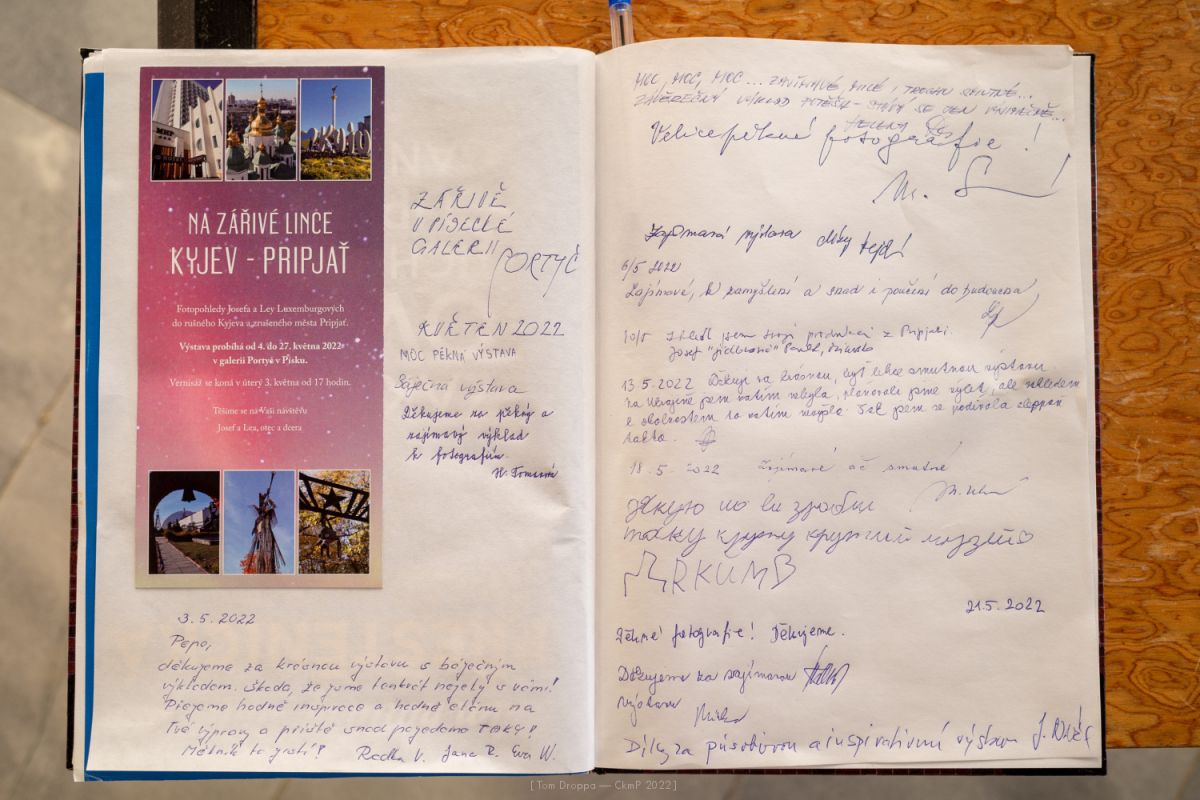 NA ZÁŘIVÉ LINCE
KYJEV - PRIPJAŤ
Fotopohledy Josefa a Ley Luxemburgových
do rušného Kyjeva a zrušeného města Pripjať.
Výstava probíhá od 4. do 27. května 2022
v galerii Portyč v Písku.
Vernisáž se koná v úterý 3. května od 17 hodin.
Těšíme se na Vaši návštěvu
Josef a Lea, otec a dcera
ZÁŘIVĚ
V PÍSECKÉ
GALERII
PORTYČ
KVĚTEN 2022
MOC PĚKNÁ VÝSTAVA
Báječná výstava
Děkujeme za pěkný a
zajímavý výklad
k fotografiím.
3. 5. 2022
Pepo,
děkujeme za krásnou výstavu s báječným
výkladem. Škoda, že jsme tenkrát nejely s vámi!
Přejeme hodně inspirace a hodně elánu na
Tvé výpravy a příště snad pojedeme TAKY!
Mělník to jistí!
Radka V. Jana R. Eva W.
MOC, MOC, MOC... ZAJÍMAVÉ, MILÉ I TROCHU SMUTNÉ...
ZÁVĚREČNÝ VÝKLAD POTĚŠIL - SE DEN
HELENA
Velice pěkné fotografie !
Zajímavá výstava díky
6/5 2022
Zajímavé, k zamyšlení a snad i poučení do budoucna
10/5 jsem svoji z Pripjati.
Josef
13. 5. 2022 Děkuji za krásnou, byť lehce smutnou výstavu
na Ukrajině jsem zatím nebyla, plánovali jsme výlet, ale vzhledem
k okolnostem to zatím nevyšlo. Tak jsem se podívala alespoň
takto.
18. 5. 2022 Zajímavé ač smutné
21. 5. 2022
Pěkné fotografie! Děkujeme.
Děkujeme za zajímavou
výstavu
Díky za působivou a inspirativní výstavu
[ Tom Droppa — CkmP 2022 ]